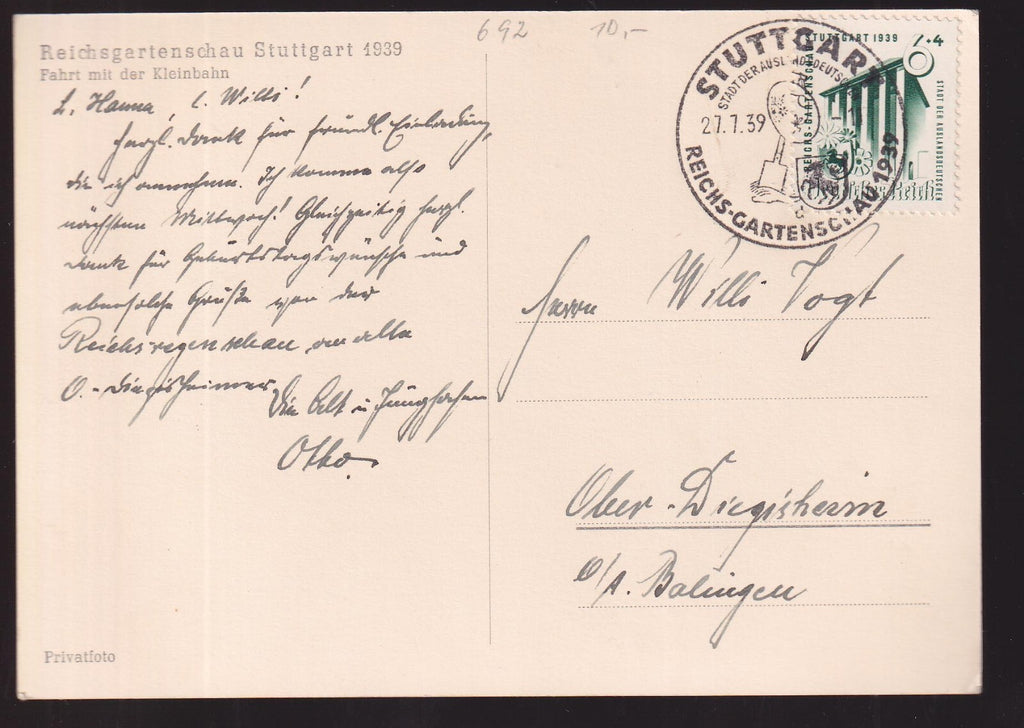 692 10,-
Reichsgartenschau Stuttgart 1939
Fahrt mit der Kleinbahn
L. Hanna, l. Willi!
herzl. Dank für freundl. Einladung,
die ich annehme. Ich komme also
nächsten Mittwoch! Gleichzeitig herzl.
Dank für Geburtstagswünsche und
ebensolche Grüße von der
Reichsregenschau an alle
O.-Digisheimer
Otto.
STUTTGART
STADT DER AUSLANDSDEUTSCHEN
27.7.39
REICHS-GARTENSCHAU 1939
STUTTGART 1939
7+4
REICHS-GARTENSCHAU
STADT DER AUSLANDSDEUTSCHEN
Deutsches Reich
Herrn Willi Vogt
Ober-Digisheim
O/A. Balingen
Privatfoto